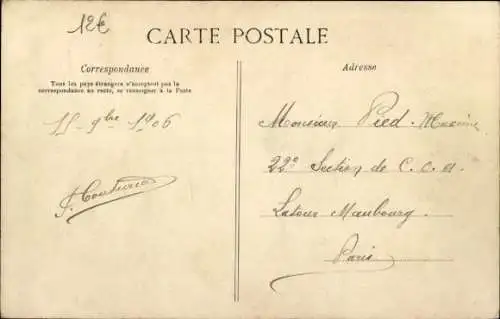 12€
CARTE POSTALE
Correspondance
Tous les pays étrangers n'acceptent pas la
correspondance au recto, se renseigner à la Poste
15 - 9bre 1906
Adresse
Monsieur Pied Maxime
22e Section de C.O.A.
Latour Maubourg
Paris